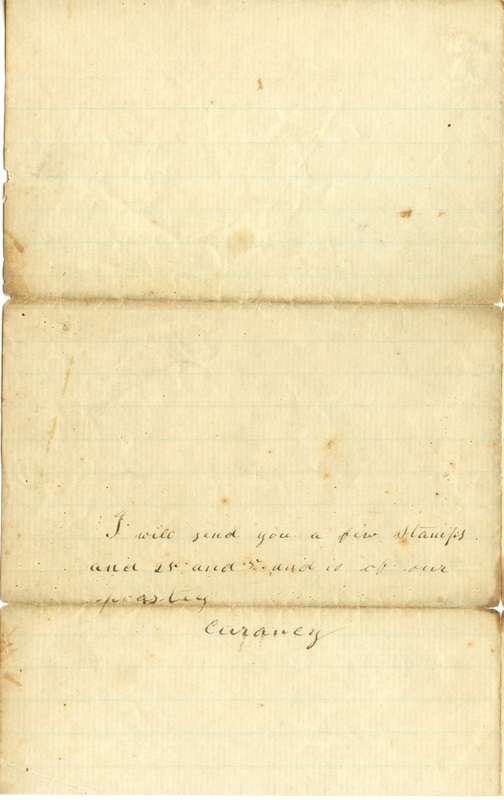 I will send you a few stamps
and 25 and 5 and 10 of our
postley
curancy